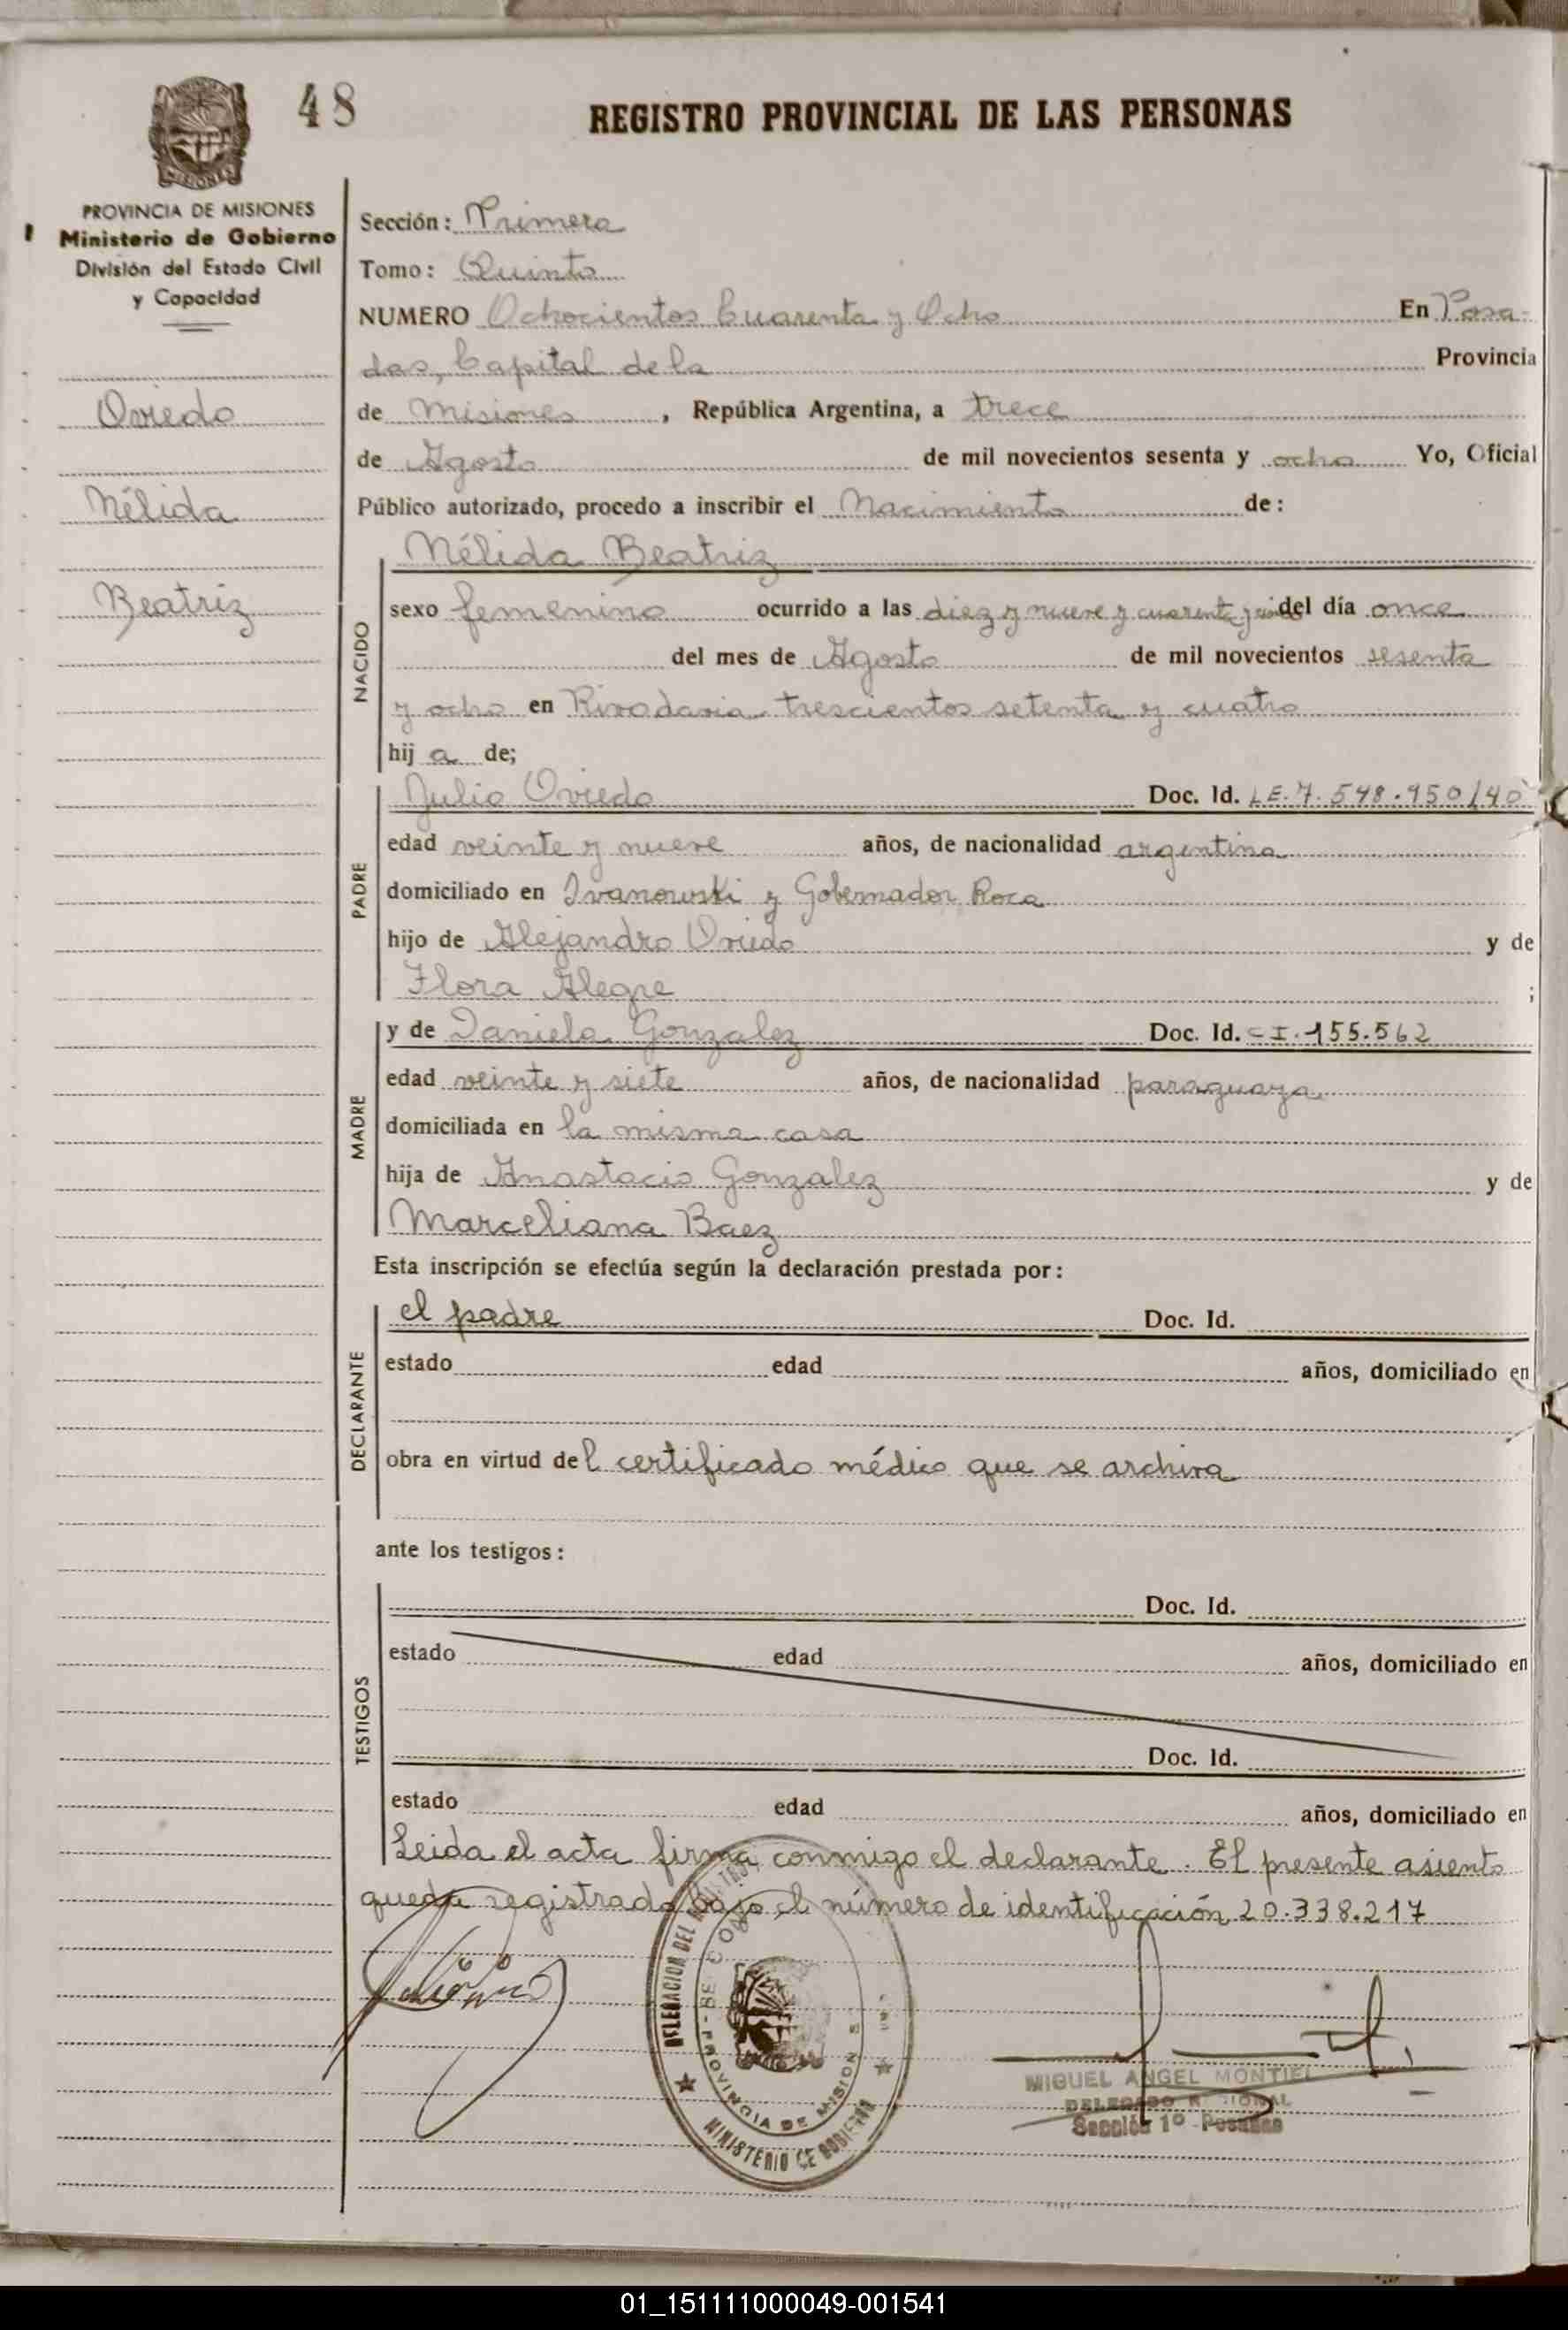 48
REGISTRO PROVINCIAL DE LAS PERSONAS
MISIONES
PROVINCIA DE MISIONES
Ministerio de Gobierno
División del Estado Civil
y Capacidad
Oviedo
Nélida
Beatriz
Sección: Primera
Tomo: Quinto
NUMERO Ochocientos Cuarenta y Ocho En Posa-
das, Capital de la Provincia
de Misiones, República Argentina, a trece
de Agosto de mil novecientos sesenta y ocho Yo, Oficial
Público autorizado, procedo a inscribir el Nacimiento de:
NACIDO
Nélida Beatriz
sexo femenino ocurrido a las diez y nueve y cuarenta y del día once
del mes de Agosto de mil novecientos sesenta
y ocho en Rivadavia trescientos setenta y cuatro
hij a de;
PADRE
Julio Oviedo Doc. Id. LE. 7.548.950/40
edad veinte y nueve años, de nacionalidad argentina
domiciliado en Ivanowski y Gobernador Roca
hijo de Alejandro Oviedo y de
Flora Alegre ;
MADRE
y de Daniela Gonzalez Doc. Id. C.I. 155.562
edad veinte y siete años, de nacionalidad paraguaya
domiciliada en la misma casa
hija de Anastacio Gonzalez y de
Marceliana Baez
Esta inscripción se efectúa según la declaración prestada por:
DECLARANTE
el padre Doc. Id.
estado edad años, domiciliado en
obra en virtud del certificado médico que se archiva
ante los testigos:
TESTIGOS
Doc. Id.
estado edad años, domiciliado en
Doc. Id.
estado edad años, domiciliado en
Leida el acta firma conmigo el declarante. El presente asiento
queda registrado bajo el número de identificación 20.338.217
DELEGACION DEL
PROVINCIA DE MISIONES
MINISTERIO DE GOBIERNO
MIGUEL ANGEL MONTIEL
DELEGADO REGIONAL
Sección 1º - Posadas
01_151111000049-001541